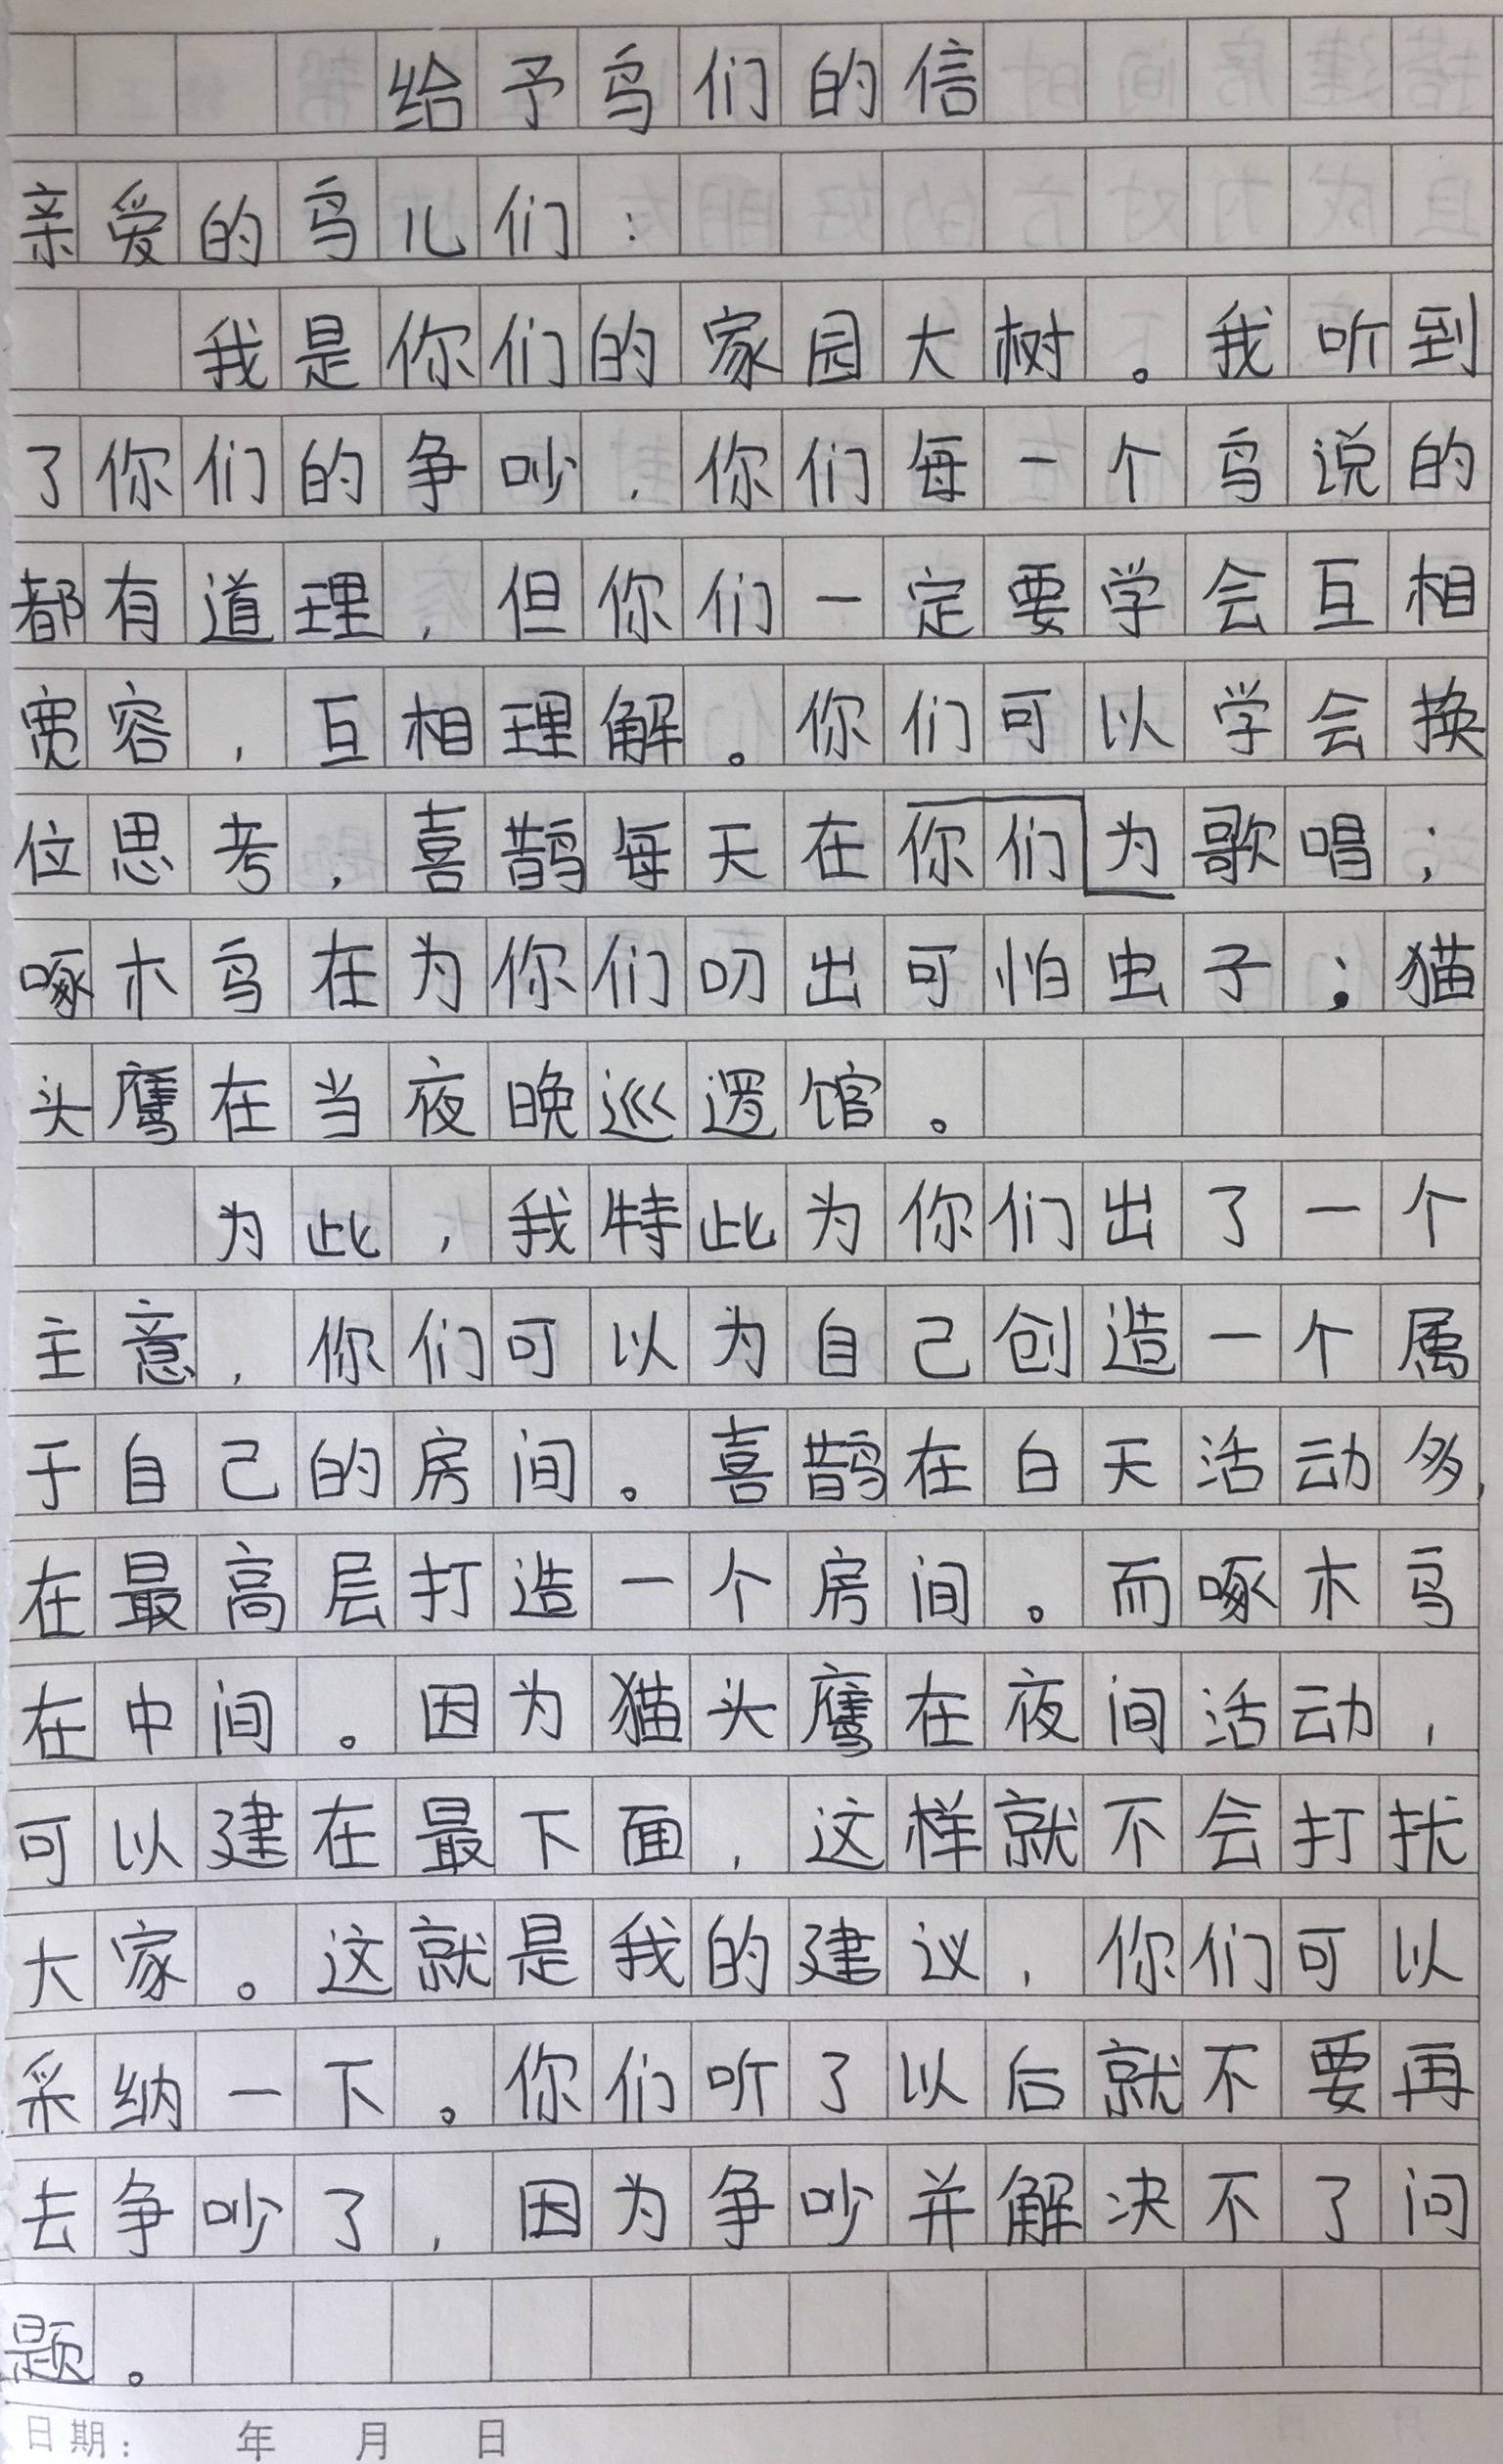 给予鸟们的信
亲爱的鸟儿们：
我是你们的家园大树。我听到
了你们的争吵，你们每一个鸟说的
都有道理，但你们一定要学会互相
宽容，互相理解。你们可以学会换
位思考，喜鹊每天在你们为歌唱；
啄木鸟在为你们叨出可怕虫子；猫
头鹰在当夜晚巡逻馆。
为此，我特此为你们出了一个
主意，你们可以为自己创造一个属
于自己的房间。喜鹊在白天活动多，
在最高层打造一个房间。而啄木鸟
在中间。因为猫头鹰在夜间活动，
可以建在最下面，这样就不会打扰
大家。这就是我的建议，你们可以
采纳一下。你们听了以后就不要再
去争吵了，因为争吵并解决不了问
题。
日期： 年 月 日